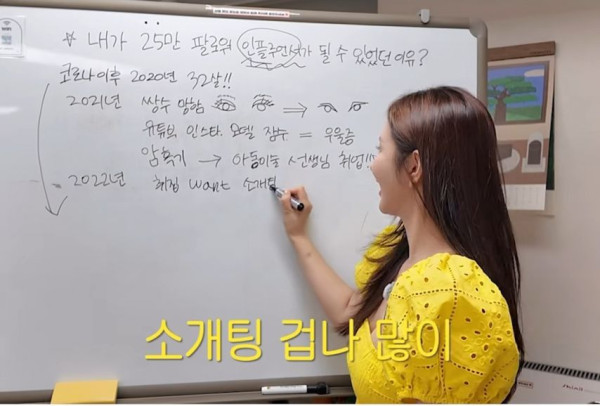 ☆ 내가 25만 팔로워 인플루언서가 될 수 있었던 이유?
코로나 이후 2020년 32살!!
2021년 쌍수 망함 ⇒
유튜브, 인스타, 모델 잠수 = 우울증
암흑기 → 아동미술 선생님 취업!!!
→ 2022년 취집 want 소개팅
소개팅 겁나 많이